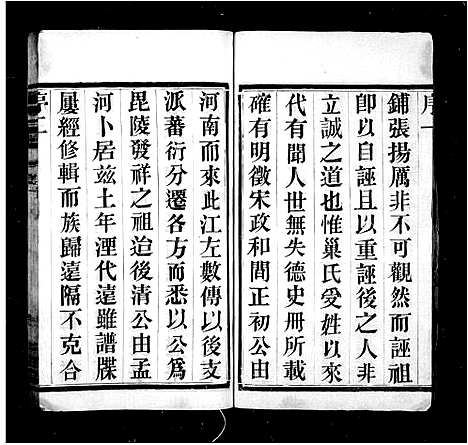 序一
鋪張揚厲非不可觀然而誣祖
卽以自誣且以重誣後之人非
立誠之道也惟巢氏受姓以來
代有聞人世無失德史册所載
確有明徵宋政和間正初公由
河南而來此江左數傳以後支
派蕃衍分遷各方而悉以公爲
毘陵發祥之祖迨後清公由孟
河卜居兹土年湮代遠雖譜牒
屢經修輯而族歸遠隔不克合
序二